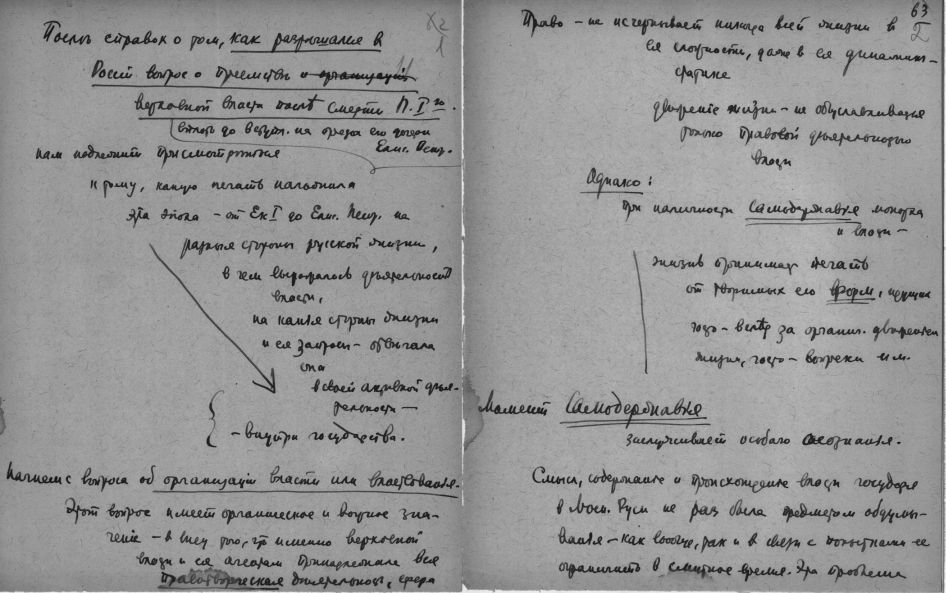 После справок о том, как разрешался в
Россіи вопрос о преемстве и организаціи
верховной власти после смерти П. I го.
вплоть до вступл. на престол его дочери
Елис. Петр.
нам надлежит присмотреться
к тому, какую печать наложила
эта эпоха – от Ек I до Елис. Петр. на
разныя стороны русской жизни,
в чем выразилась деятельность
власти,
на какія стороны жизни
и ея запросы – отвечала
она
в своей активной дея-
тельности –
– внутри государства.
Начнем с вопроса об организаціи власти или властвованія.
Этот вопрос имеет органическое и важное зна-
ченіе – в виду того, что именно верховной
власти и ея агентам принадлежала вся
правотворческая деятельность, сфера
63
Право – не исчерпывает никогда всей жизни в
ея сложности, даже в ея динамике-
статике
движеніе жизни – не обуславливается
только правовой деятельностью
власти
Однако:
При наличности Самодержавія монарха
и власти –
жизнь принимает печать
от творимых его форм, идущих
то – вслед за органич. движеніем
жизни, то – вопреки им.
Момент Самодержавія
заслуживает особаго осознанія.
Смысл, содержаніе и происхожденіе власти государя
в Моск. Руси не раз была предметом обдумы-
ванія – как вообще, так и в связи с попытками ее
ограничить в смутное время. Эта проблема